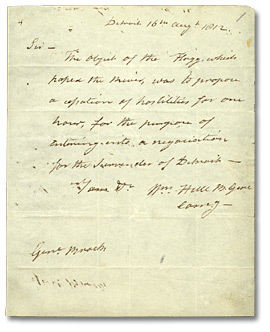 Detroit 16th Augt 1812.
Sir —
The Object of the Flagg, which
passed the river, was to propose
a cessation of hostilities for one
hour, for the purpose of
entering into a negociation
for the Surrender of Detroit —
Yours &c
Wm Hull B. Genl
Comg —
Genl Brock